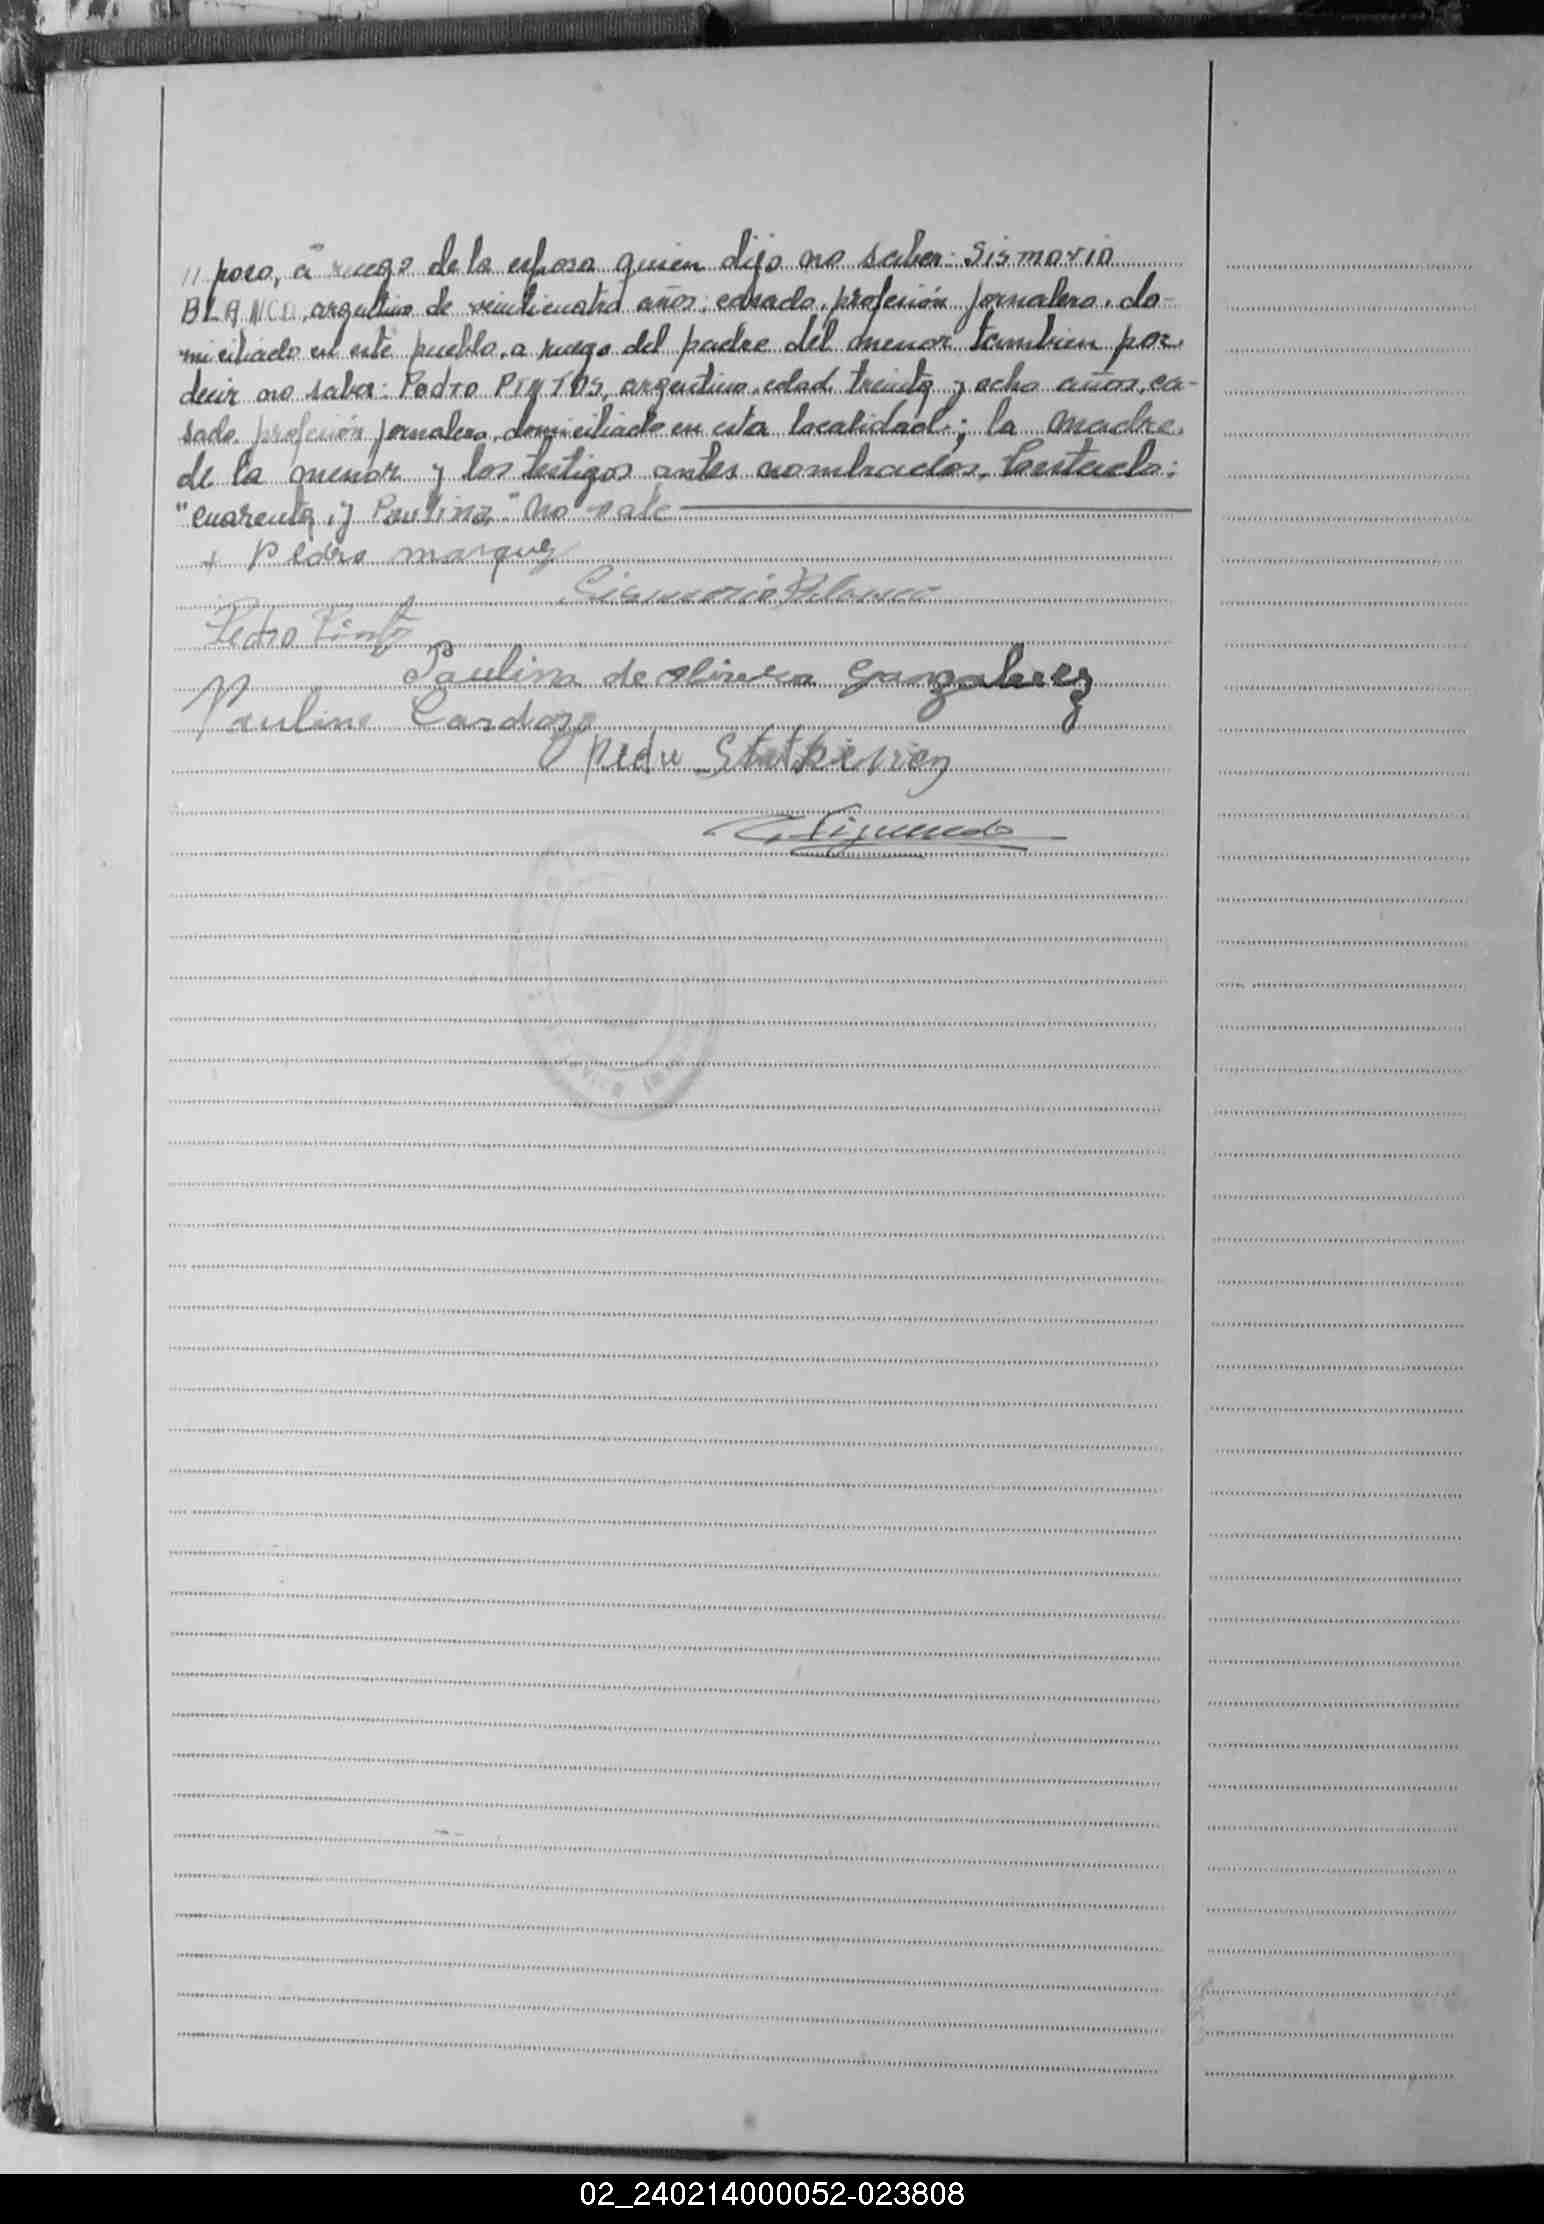 // poso, a ruego de la esposa quien dijo no saber: Sismorio
BLANCO, argentino de veinticuatro años, casado, profesión jornalero, do-
miciliado en este pueblo, a ruego del padre del menor tambien por
decir no saber: Pedro PINTOS, argentino, edad treinta y ocho años, ca-
sado, profesión jornalero, domiciliado en esta localidad; la madre
de la menor y los testigos antes nombrados. Testado:
"cuarenta, y Paulina" No vale
+ Pedro marquez
Sismorio Blanco
Pedro Pintos
Paulina de olivera Gonzalez
Paulino Cardozo
Pedro
02_240214000052-023808